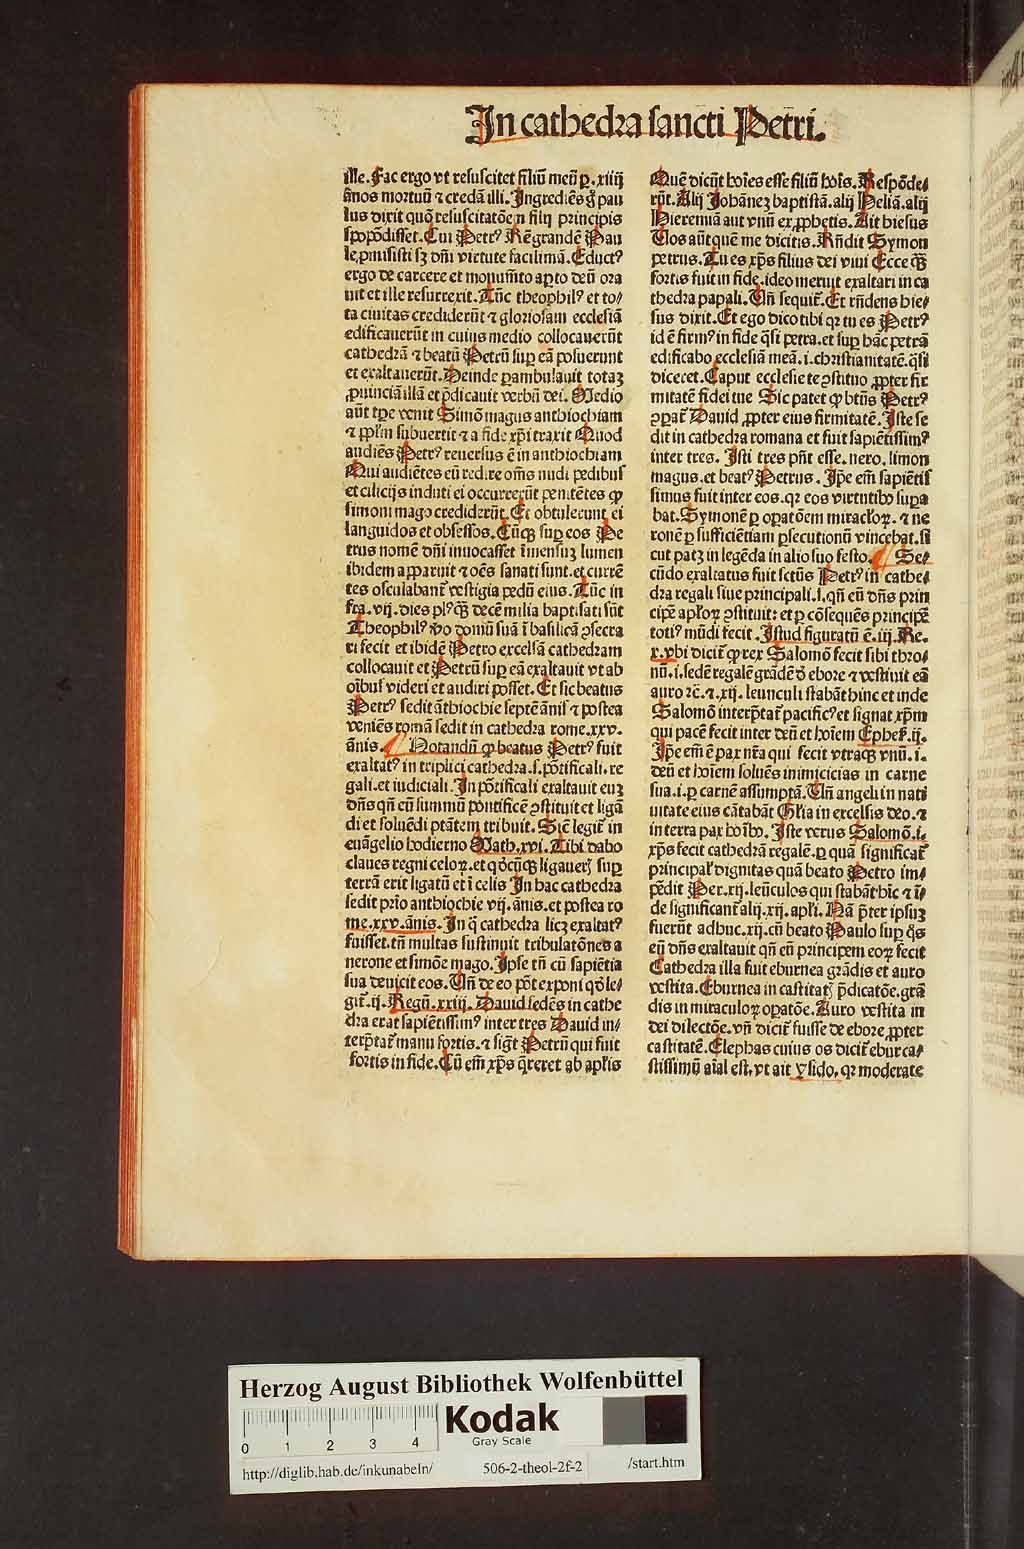 In cathedra sancti Petri.
ille. Fac ergo vt resuscitet filiū meū ꝑ .xiiij
ānos mortuū ⁊ credā illi. Ingrediēs g̊ pau
lus dixit quō resuscitatōeɜ filij principis
spopōdisset. Cui Petrꝰ Rē grandē Pau
le ꝓmisisti sꝫ dn̄i virtute facilimā. Eductꝰ
ergo de carcere et monumēto aꝑto deū ora
uit et ille resurrexit. Tūc theophilꝰ et to/
ta ciuitas crediderūt ⁊ gloriosam ecclesiā
edificauerūt in cuius medio collocauerūt
cathedrā ⁊ beatū Petrū suꝑ eā posuerunt
et exaltauerūt. Deinde ꝑambulauit totaꝫ
ꝓuinciā illā et p̄dicauit verbū dei. Medio
aūt tꝑe venit Simō magus anthiochiam
⁊ ppl̄m subuertit ⁊ a fide xp̄i traxit Quod
audiēs Petrꝰ reuersus ē in anthiochiam
Qui audiētes eū redire om̄s nudi pedibus
et cilicijs induti ei occurrerūt penitētes ꝙ
simoni mago crediderūt. Et obtulerunt ei
languidos et obsessos. Cūqꝫ suꝑ eos Pe
trus nomē dn̄i inuocasset īmensuꝫ lumen
ibidem apparuit ⁊ oēs sanati sunt. et currē
tes osculabant̄ vestigia pedū eius. Tūc in
fra .vij. dies plꝰqꝫ decē milia baptisati sūt
Theophilꝰ v̊o domū suā ī basilicā ꝯsecra
ri fecit et ibidē Petro excelsā cathedram
collocauit et Petrū suꝑ eā exaltauit vt ab
oībus videri et audiri posset. Et sic beatus
Petrꝰ sedit āthiochie septē ānis ⁊ postea
veniēs romā sedit in cathedra rome .xxv.
ānis. Notandū ꝙ beatus Petrꝰ fuit
exaltatꝰ in triplici cathedra .s. pōtificali. re
gali. et iudiciali. In pōtificali exaltauit euꝫ
dn̄s qn̄ eū summū pontificē ꝯstituit et ligā
di et soluēdi ptātem tribuit. Sic̄ legit̄ in
euāgelio hodierno Math. xvi. Tibi dabo
claues regni celoꝝ. et qd̊cūqꝫ ligaueꝭ suꝑ
terrā erit ligatū et ī celis In hac cathedra
sedit prīo anthiochie vij. ānis. et postea ro
me .xxv. ānis. In q̄ cathedra licꝫ exaltatꝰ
fuisset. tn̄ multas sustinuit tribulatōnes a
nerone et simōe mago. Ipse tn̄ cū sapiētia
sua deuicit eos. Vn̄ de eo pōt exponi qd̊ le/
git̄ .ij. Regū. xxiij. Dauid sedēs in cathe
dra erat sapiētissimꝰ inter tres Dauid in/
terp̄tat̄ manu fortis. ⁊ sigt̄ Petrū qui fuit
fortis in fide. Cū em̄ xp̄s q̄reret ab apl̄is
Quē dicūt hoīes esse filiū hoīs. Respōde/
rūt. Alij Johānez baptistā. alij Heliā. alij
Hieremiā aut vnū ex ꝓphetis. Ait hiesus
Vos aūt quem me dicitis. Rn̄dit Symon
petrus. Tu es xp̄s filius dei viui Ecce qꝫ
fortis fuit in fide. ideo meruit exaltari in ca
thedra papali. Vn̄ sequit̄. Et rn̄dens hie/
sus dixit. Et ego dico tibi qꝛ tu es Petrꝰ
id ē firmꝰ in fide q̄si petra. et suꝑ hāc petrā
edificabo ecclesiā meā .i. christianitatē. q̄si
diceret. Caput ecclesie te ꝯstituo ꝓpter fir
mitatē fidei tue Sic patet ꝙ bt̄us Petrꝰ
ꝯparat̄ Dauid ꝓpter eius firmitatē. Iste se
dit in cathedra romana et fuit sapiētissimꝰ
inter tres. Isti tres pn̄t esse. nero. simon
magus. et beatꝰ Petrus. Ipe em̄ sapiētis
simus fuit inter eos. qꝛ eos virtutibꝰ supa
bat. Symonē ꝑ oꝑatōem miraculoꝝ. ⁊ ne
ronē ꝑ sufficiētiam ꝑsecutionū vincebat. si
cut patꝫ in legēda in alio suo festo. Se/
cūdo exaltatus fuit sctūs Petrꝰ in cathe/
dra regali siue principali .s. qn̄ eū dn̄s prin
cipē apl̄oꝝ ꝯstituit: et ꝑ cōsequēs principē
totiꝰ mūdi fecit. Istud figuratū ē .iij. Re.
x. vbi dicit̄ ꝙ rex Salomō fecit sibi thro/
nū .i. sedē regalē grādē d̊ ebore ⁊ vestiuit eā
auro ꝛc̄. ⁊ .xij. leunculi stabāt hinc et inde
Salomō interp̄tat̄ pacificꝰ et signat xp̄m
qui pacē fecit inter deū et hoīem Ephes. ij.
Ipe em̄ ē pax nr̄a qui fecit vtraqꝫ vnū .i.
deū et hoīem soluēs inimicicias in carne
sua .i. ꝑ carnē assumptā. Vn̄ angeli in nati
uitate eius cātabāt Gl̄ia in excelsis deo. ⁊
in terra pax hoībꝰ. Iste verus Salomō .i.
xp̄s fecit cathedrā regalē. ꝑ quā significat̄
principal̄ dignitas quā beato Petro im/
pēdit Per .xij. leūculos qui stabāt hīc ⁊ ī/
de significant̄ alij .xij. apl̄i. Nā p̄ter ipsuꝫ
fuerūt adhuc .xij. cū beato Paulo suꝑ q̊s
eū dn̄s exaltauit qn̄ eū principem eoꝝ fecit
Cathedra illa fuit eburnea grādis et auro
vestita. Eburnea in castitatꝭ p̄dicatōe. grā
dis in miraculoꝝ oꝑatōe. Auro vestita in
dei dilectōe. vn̄ dicit̄ fuisse de ebore ꝓpter
castitatē. Elephas cuius os dicit̄ ebur ca/
stissimū aīal est. vt ait ysido. qꝛ moderate
Herzog August Bibliothek Wolfenbüttel
0 1 2 3 4
Kodak
Gray Scale
http://diglib.hab.de/inkunabeln/ 506-2-theol-2f-2 /start.htm